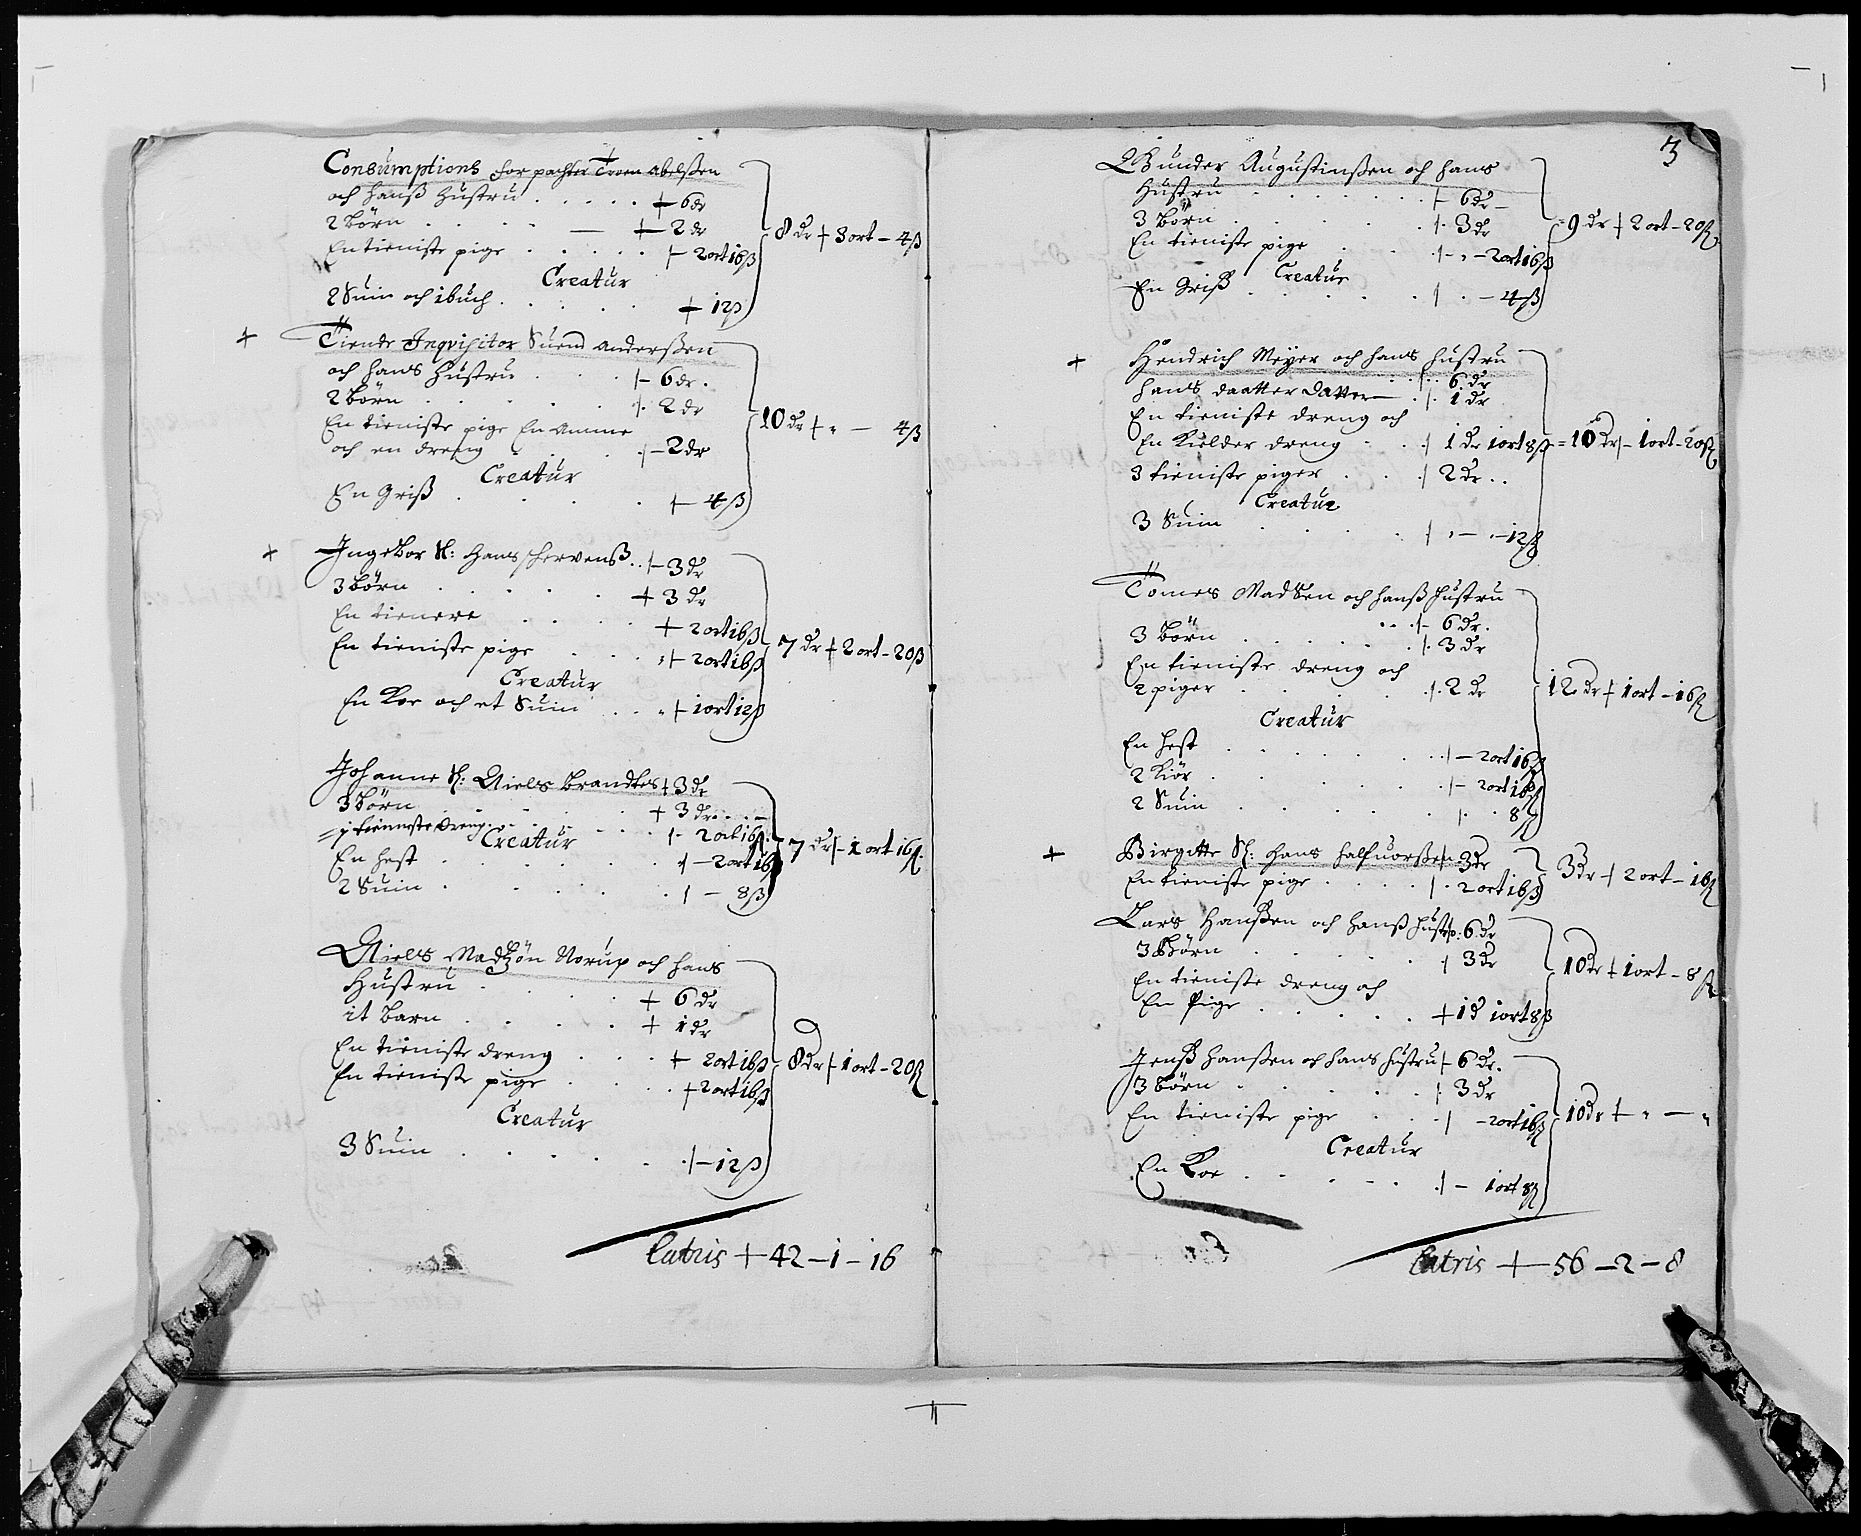 Consumptions forpachter Troen Abelssen
och hanss Hustru . . . . . + 6 dr
2 börn . . . — + 2 dr
En tieniste pige . . . . . + 2 ort 16 ß
Creatur
2 Suin och 1 buch . . . . + 12 ß
8 dr + 3 ort – 4 ß
+ Tiende Inqvisitor Suend Anderssen
och hans hustru . . . . + 6 dr.
2 börn . . . . . . + 2 dr
En tieniste pige En Amme
och en dreng . . . . + 2 dr
Creatur
En Griss . . . . + 4 ß
10 dr + „ – 4 ß
+ Ingebor Sl: Hans . . + 3 dr
3 börn . . . . . + 3 dr
En tienere . . . . + 2 ort 16 ß
En tieniste pige . . . + 2 ort 16 ß
Creatur
En Koe och et Suin . . . + 1 ort 12 ß
7 dr + 2 ort – 20 ß
Johanne Sl: Niels Brandtes + 3 dr
3 börn . . . . . + 3 dr . . –
1 tienneste dreng . . . . . + 2 ort 16 ß
Creatur
En hest . . . . . + – 2 ort 16 ß
2 Suin . . . . . + – 8 ß
7 dr + 1 ort 16 ß.
Niels Madtzön Norup och hans
Hustru . . . . + 6 dr
it barn . . . . . + 1 dr
En tieniste dreng . . . + 2 ort 16 ß
En tieniste pige . . . . + 2 ort 16 ß
Creatur
3 Suin . . . . . + – 12 ß
8 dr + 1 ort – 20 ß
Latris + 42 – 1 – 16
3
Gunder Augustinssen och hans
Hustru . . . . . . + 6 dr –
3 börn . . . . . + 3 dr
En tieniste pige . . . + – „ – 2 ort 16 ß
Creatur
En Griss . . . . . + . – 4 ß
= 9 dr + 2 ort – 20 ß
+ Hendrich Meyer och hans hustru
. . + . . 6 dr
hans daatter datter . + . 1 dr
En tieniste dreng och
En Kielder dreng . . . + 1 dr 1 ort 8 ß
3 tieniste piger . . . + 2 dr . .
Creatur
3 Suin . . . . + „ – „ – 12 ß
= 10 dr + – 1 ort – 20 ß
Tomes Madsen och hanss hustru
. . . + 6 dr.
3 börn . . . . . + 3 dr
En tieniste dreng och
2 piger . . . . + . 2 dr
Creatur
En hest . . . . . . + – 2 ort 16 ß
2 Kiör . . . . . + – 2 ort 16 ß
2 Suin . . . . . + . . 8 ß
12 dr + 1 ort – 16 ß
+ Birgitte Sl: Hans Halfuorssen + 3 dr
En tieniste pige . . . . + . 2 ort 16 ß
3 dr + 2 ort – 16 ß
Lars Hanssen och hanss hustru : 6 dr
3 Börn . . . . . + 3 dr
En tieniste dreng och
En Pige . . . . . + 1 d 1 ort 8 ß
10 dr + 1 ort – 8 ß
Jenss Hanssen och hans hustru + 6 dr.
3 börn . . . . . + 3 dr
En tieniste pige . . . + – 2 ort 16 ß
Creatur
En Koe . . . . . + – 1 ort 8 ß
10 dr + „ — „
Latris + 56 – 2 – 8